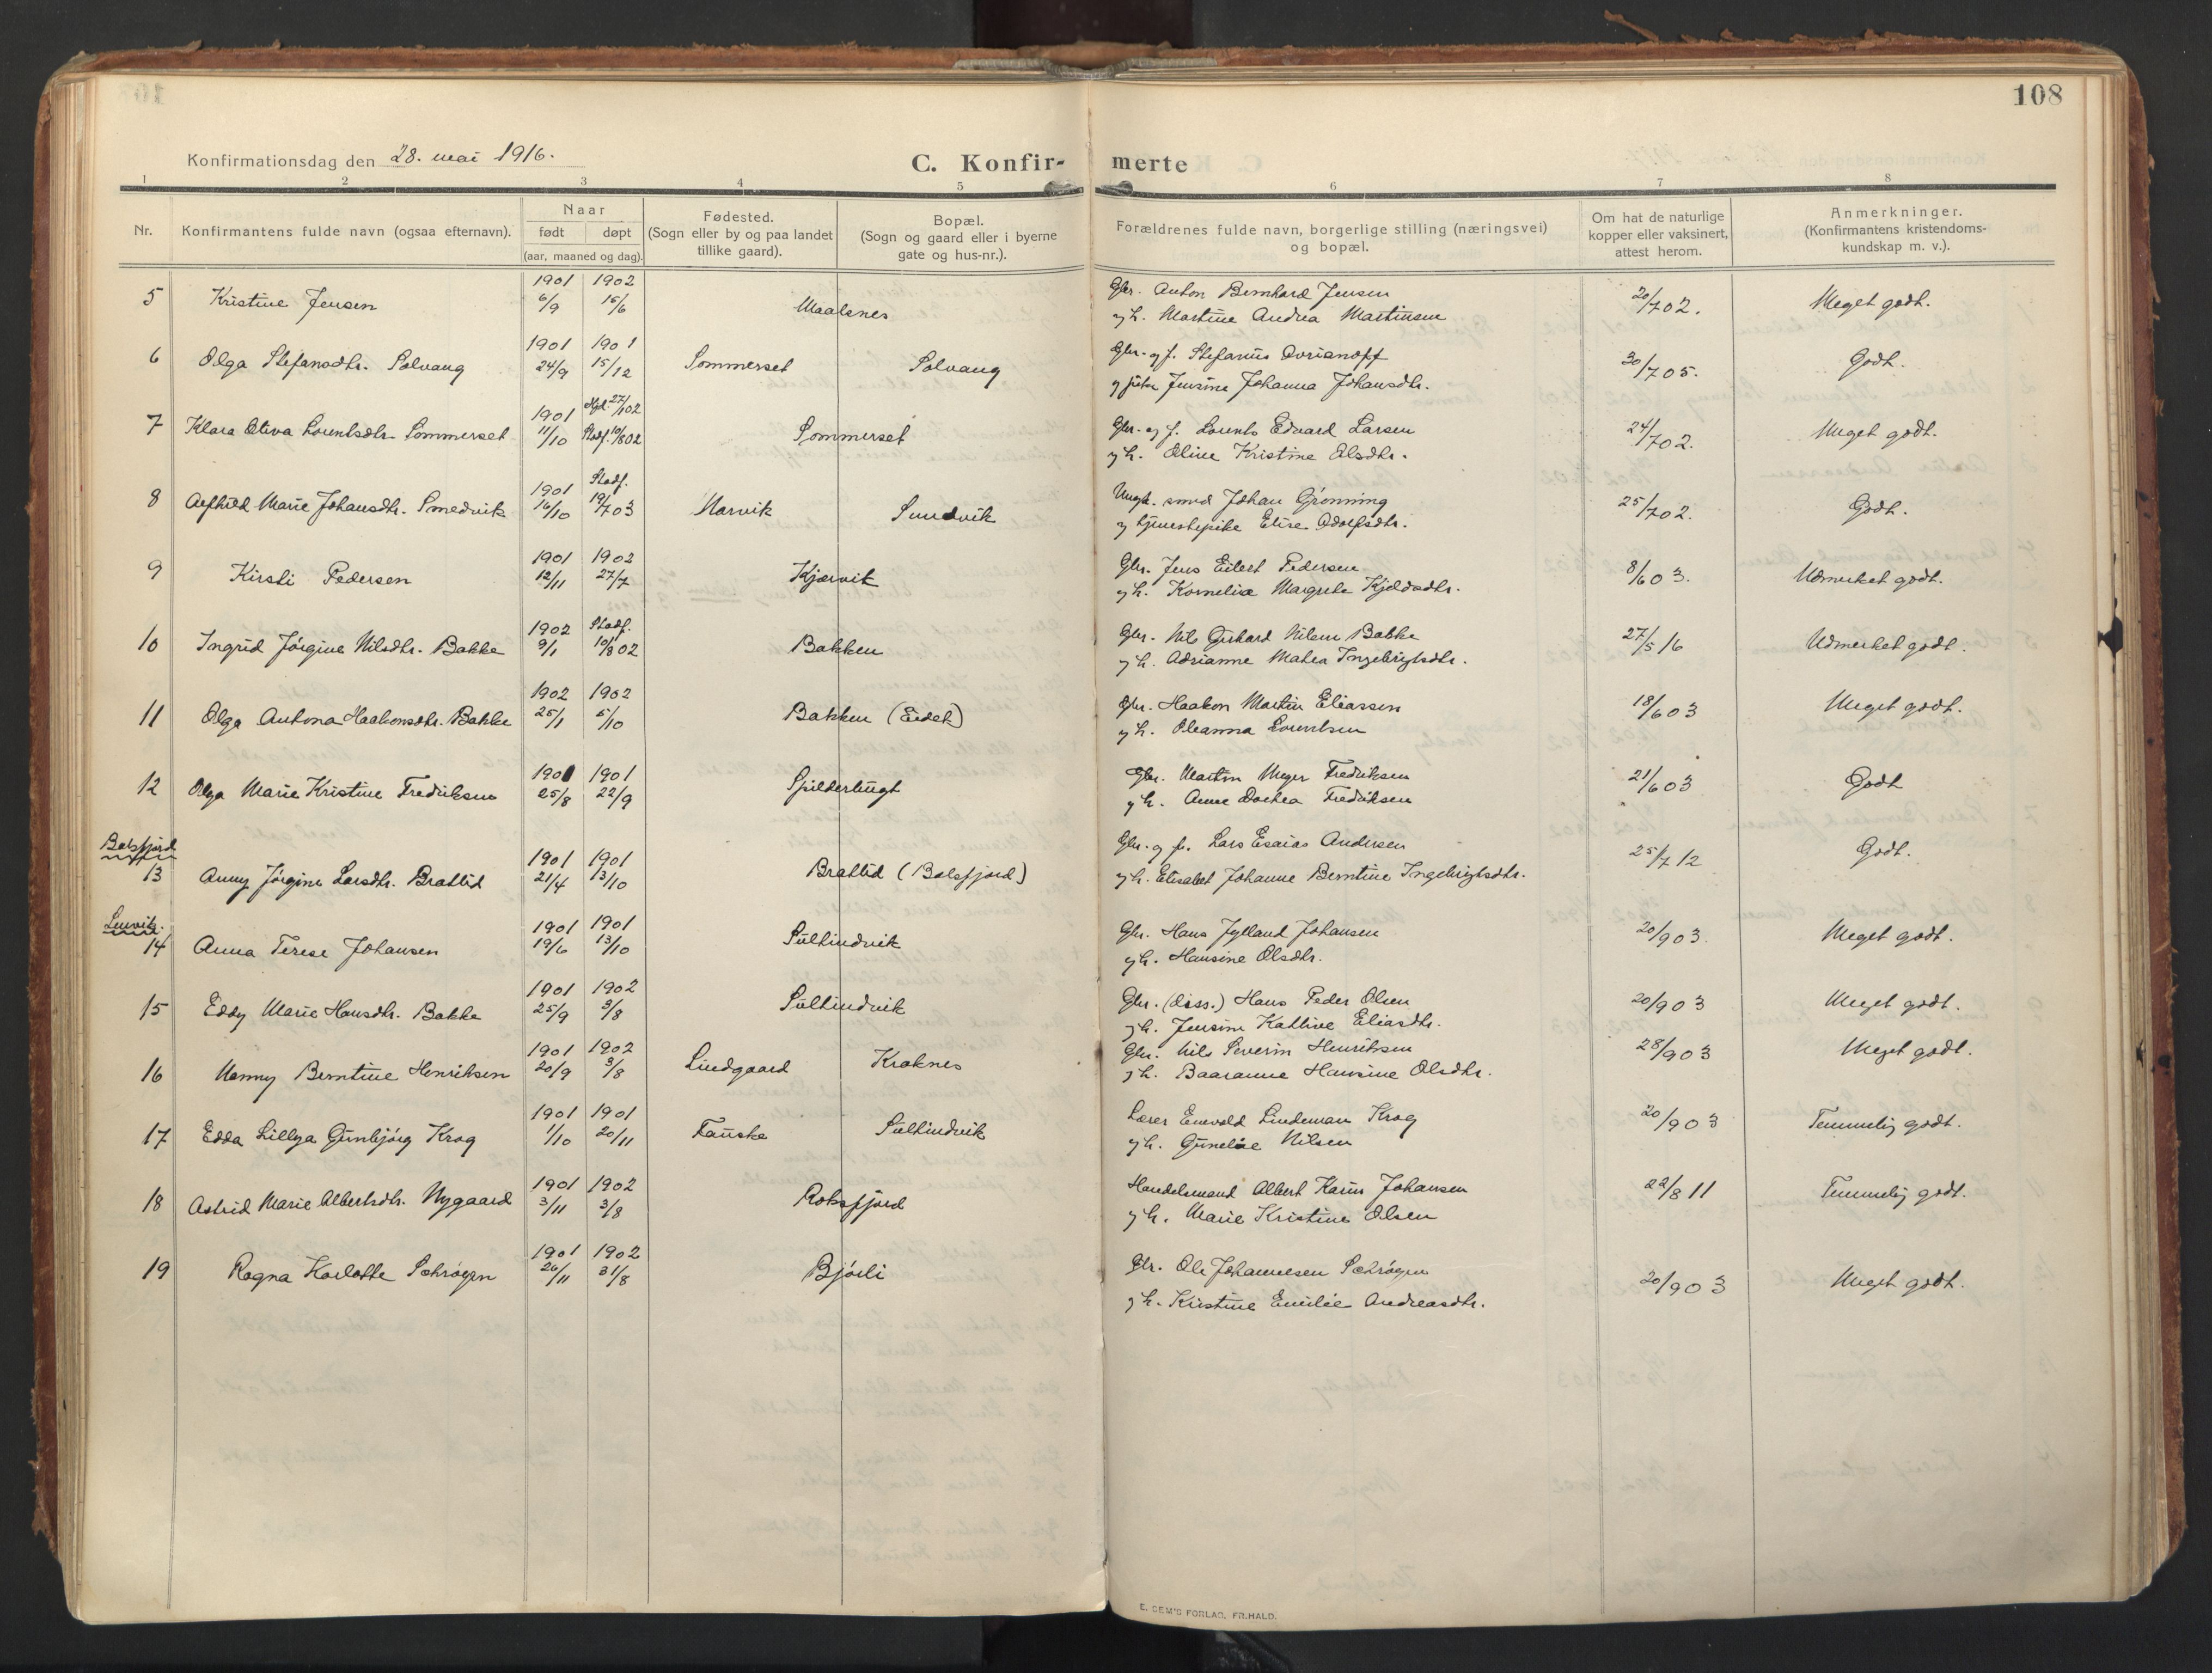 108
Konfirmationsdag den 28. mai 1916.
C. Konfir- merte
1 2 3 4 5 6 7 8
Nr.
Konfirmantens fulde navn (ogsaa efternavn).
Naar
født døpt
(aar, maaned og dag).
Fødested.
(Sogn eller by og paa landet
tillike gaard).
Bopæl.
(Sogn og gaard eller i byerne
gate og hus-nr.).
Forældrenes fulde navn, borgerlige stilling (næringsvei)
og bopæl.
Om hat de naturlige
kopper eller vaksinert,
attest herom.
Anmerkninger.
(Konfirmantens kristendoms-
kundskap m. v.).
1901 1902 Gbr. Anton Bernhard Jensen
5 Kristine Jensen 6/9 15/6 Maalsnes 20/7 02. Meget godt.
og h. Martine Andrea Martinsen
1901 1901 Gbr. og f. Stefanus
6 Olga Stefansdtr. Solvang 24/9 15/12 Sommerset Solvang 30/7 05. Godt.
og Jensine Johanna Johansdtr.
1901 Hjd. 27/1 02
7 Klara Lorentsdtr. Sommerset 11/10 Stadf. 10/8 02 Sommerset Gbr. og f. Lorents Edvard Larsen 24/7 02. Meget godt.
og h. Oline Kristine Olsdtr.
1901 Stadf. Ungk. smed Johan Grönning
8 Alfhild Marie Johansdtr. Smedvik 16/10 19/7 03 Narvik 25/7 02. Godt.
og tjenestepike Elise Adolfsdtr.
1901 1902 Gbr. Jens Eilert Pedersen
9 Kirsti Pedersen 12/11 27/7 Kjærvik 8/6 03. Udmerket godt.
og h. Kornelia Margrete Kjeldsdtr.
1902 Stadf. Gbr. Nils Gerhard Nilsen Bakke
10 Ingrid Jörgine Nilsdtr. Bakke 9/1 10/8 02 Bakken 27/5 16 Udmerket godt.
og h. Adrianne Matea Ingebrigtsdtr.
1902 1902 Gbr. Haakon Martin Eliassen
11 Olga Antona Haakonsdtr. Bakke 25/1 5/10 Bakken (Eidet) 18/6 03 Meget godt.
og h. Oleanna Lorentsen
1901 1901 Gbr. Martin Meyer Fredriksen
12 Olga Marie Kristine Fredriksen 25/8 22/9 Spilderbugt 21/6 03 Godt
og h. Anne Dortea Fredriksen
Balsfjord 1901 1901 Gbr. og f. Lars Esaias Andersen
13 Anny Jörgine Larsdtr. Brattlid 21/4 13/10 Brattlid (Balsfjord) 25/7 12 Godt.
og h. Elisabet Johanne Berntine Ingebrigtsdtr.
Lenvik. 1901 1901 Gbr. Hans Jylland Johansen
14 Anna Terese Johansen 19/6 13/10 Sultindvik 20/9 03 Meget godt.
og h. Hansine Olsdtr.
1901 1902 Gbr. (diss.) Hans Peder Olsen
15 Eddy Marie Hansdtr. Bakke 25/9 3/8 Sultindvik 20/9 03 Meget godt.
og h. Jensine Eliasdtr.
1901 1902 Gbr. Nils Severin Henriksen
16 Nanny Berntine Henriksen 20/9 3/8 Lindgaard Kraknes 28/9 03 Meget godt.
og h. Baaranne Hansine Olsdtr.
1901 1901 Lærer Enevold Lindeman Krog
17 Edda Lillya Gunbjörg Krog 1/10 20/11 Fauske Sultindvik 20/9 03 Temmelig godt.
og h. Nilsen
1901 1902 Handelsmand Albert Johansen
18 Astrid Marie Albertsdtr. Nygaard 3/11 3/8 Roksfjord 22/8 11 Temmelig godt.
og h. Marie Kristine Olsen
1901 1902 Gbr. Ole Johannesen Sætrögen
19 Ragna Karlotte Sætrögen 26/11 31/8 Bjórli 20/9 03 Meget godt.
og h. Kristine Emilie Andreasdtr.
E. SEM'S FORLAG, FR.HALD.